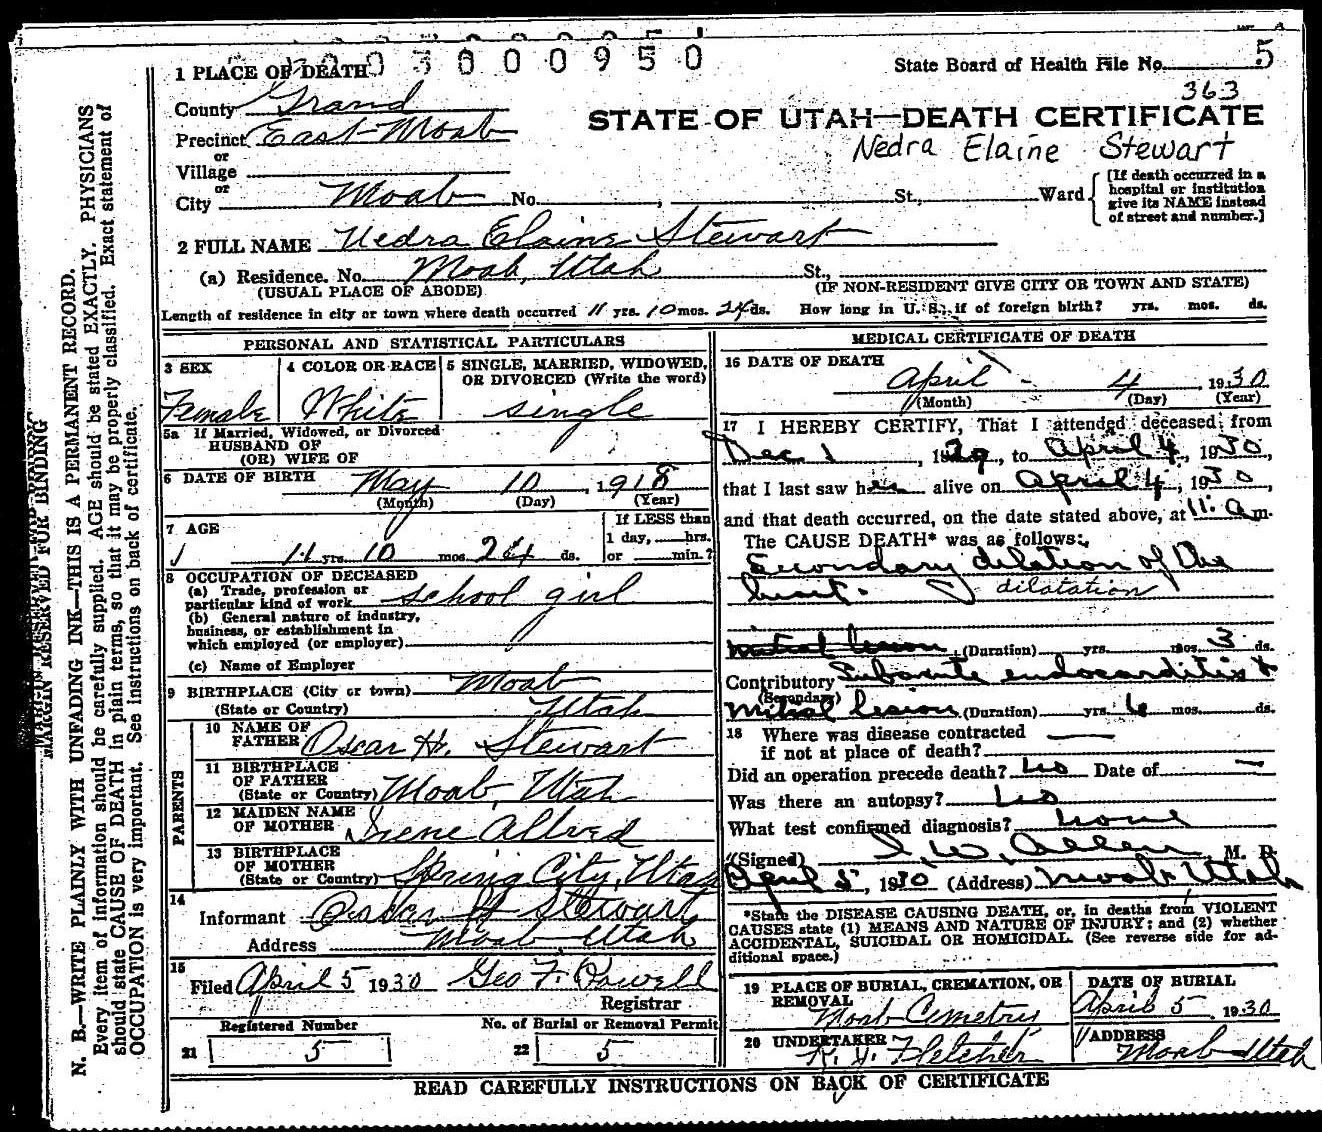 0 0 0 9 5 0
1 PLACE OF DEATH
State Board of Health File No. 5
363
County Grand
STATE OF UTAH—DEATH CERTIFICATE
Precinct East Moab
Nedra Elaine Stewart
or
Village
or
City Moab No. , St., Ward
[If death occurred in a hospital or institution give its NAME instead of street and number.]
2 FULL NAME Nedra Elaine Stewart
(a) Residence. No. Moab, Utah St.,
(USUAL PLACE OF ABODE) (IF NON-RESIDENT GIVE CITY OR TOWN AND STATE)
Length of residence in city or town where death occurred 11 yrs. 10 mos. 24 ds. How long in U. S., if of foreign birth? yrs. mos. ds.
PERSONAL AND STATISTICAL PARTICULARS
3 SEX
Female
4 COLOR OR RACE
White
5 SINGLE, MARRIED, WIDOWED, OR DIVORCED (Write the word)
single
5a If Married, Widowed, or Divorced
HUSBAND OF
(OR) WIFE OF
6 DATE OF BIRTH May 10, 1918
(Month) (Day) (Year)
7 AGE
11 yrs. 10 mos. 24 ds.
If LESS than
1 day, hrs.
or min.?
8 OCCUPATION OF DECEASED
(a) Trade, profession or
particular kind of work school girl
(b) General nature of industry,
business, or establishment in
which employed (or employer)
(c) Name of Employer
9 BIRTHPLACE (City or town) Moab
(State or Country) Utah
PARENTS
10 NAME OF
FATHER Oscar H. Stewart
11 BIRTHPLACE
OF FATHER
(State or Country) Moab, Utah
12 MAIDEN NAME
OF MOTHER Irene Allred
13 BIRTHPLACE
OF MOTHER
(State or Country) Spring City, Utah
14
Informant Oscar H Stewart
Address Moab Utah
15
Filed April 5 1930 Geo F. Powell
Registrar
Registered Number No. of Burial or Removal Permit
21 5 22 5
MEDICAL CERTIFICATE OF DEATH
16 DATE OF DEATH
April 4, 1930
(Month) (Day) (Year)
17 I HEREBY CERTIFY, That I attended deceased from
Dec 1, 1929, to April 4, 1930,
that I last saw her alive on April 4, 1930,
and that death occurred, on the date stated above, at 11: a m.
The CAUSE DEATH* was as follows:
Secondary dilation of the
heart. dilatation
mitral lesion (Duration) yrs. mos. 3 ds.
Contributory Subacute endocarditis &
(Secondary)
mitral lesion (Duration) yrs. 6 mos. ds.
18 Where was disease contracted
if not at place of death?
Did an operation precede death? no Date of —
Was there an autopsy? no
What test confirmed diagnosis? none
(Signed) I. W. Allen, M. D.
April 5, 1930 (Address) Moab Utah
*State the DISEASE CAUSING DEATH, or, in deaths from VIOLENT
CAUSES state (1) MEANS AND NATURE OF INJURY; and (2) whether
ACCIDENTAL, SUICIDAL OR HOMICIDAL. (See reverse side for ad-
ditional space.)
19 PLACE OF BURIAL, CREMATION, OR
REMOVAL
Moab Cemetery
DATE OF BURIAL
April 5, 1930
20 UNDERTAKER
Fletcher
ADDRESS
Moab Utah
READ CAREFULLY INSTRUCTIONS ON BACK OF CERTIFICATE
MARGIN RESERVED FOR BINDING
N. B.—WRITE PLAINLY WITH UNFADING INK—THIS IS A PERMANENT RECORD.
Every item of information should be carefully supplied. AGE should be stated EXACTLY. PHYSICIANS
should state CAUSE OF DEATH in plain terms, so that it may be properly classified. Exact statement of
OCCUPATION is very important. See instructions on back of certificate.